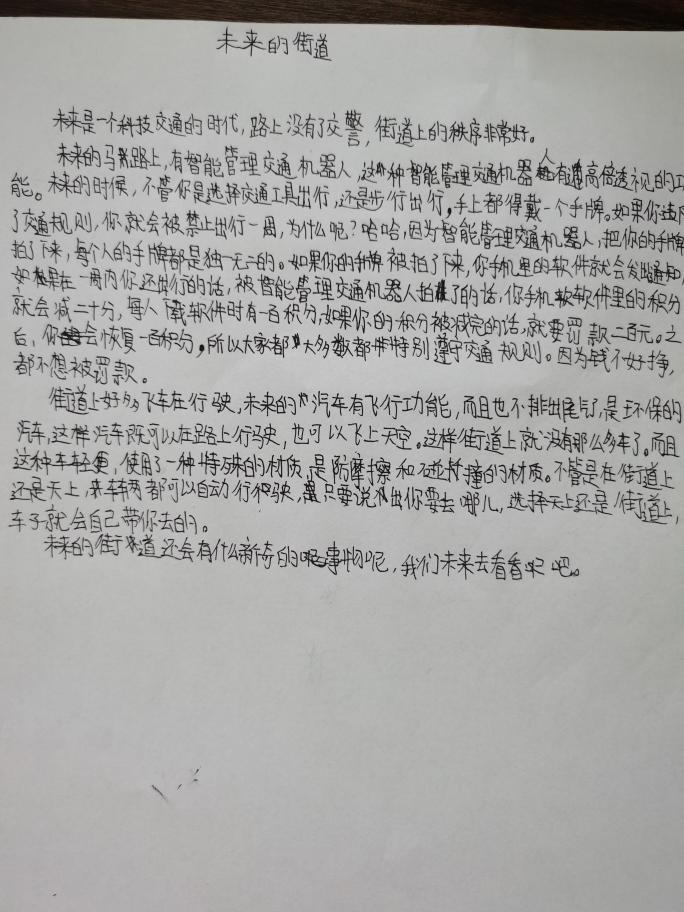 未来的街道
未来是一个科技交通的时代，路上没有了交警，街道上的秩序非常好。
未来的马路上，有智能管理交通机器人，这种智能管理交通机器人有高倍透视的功
能。未来的时候，不管你是选择交通工具出行，还是步行出行，手上都得戴一个手牌。如果你违反
了交通规则，你就会被禁止出行一周，为什么呢？哈哈，因为智能管理交通机器人，把你的手牌
拍了下来，每个人的手牌都是独一无二的。如果你的手牌被拍了下来，你手机里的软件就会发出通知，
如果在一周内你还出行的话，被智能管理交通机器人拍了的话，你手机软件里的积分
就会减二十分，每人下载软件时有一百积分，如果你的积分被减完的话，就要罚款二百元。之
后，你会恢复一百积分。所以大家都大多数都特别遵守交通规则。因为钱不好挣，
都不想被罚款。
街道上好多飞车在行驶，未来的汽车有飞行功能，而且也不排出尾气，是环保的
汽车，这样汽车既可以在路上行驶，也可以飞上天空。这样街道上就没有那么多车了。而且
这种车轻便，使用了一种特殊的材质，是防摩擦和碰撞的材质。不管是在街道上
还是天上，车辆都可以自动行驶，只要说出你要去哪儿，选择天上还是街道上，
车子就会自己带你去的。
未来的街道还会有什么新奇的事物呢，我们未来去看看吧。